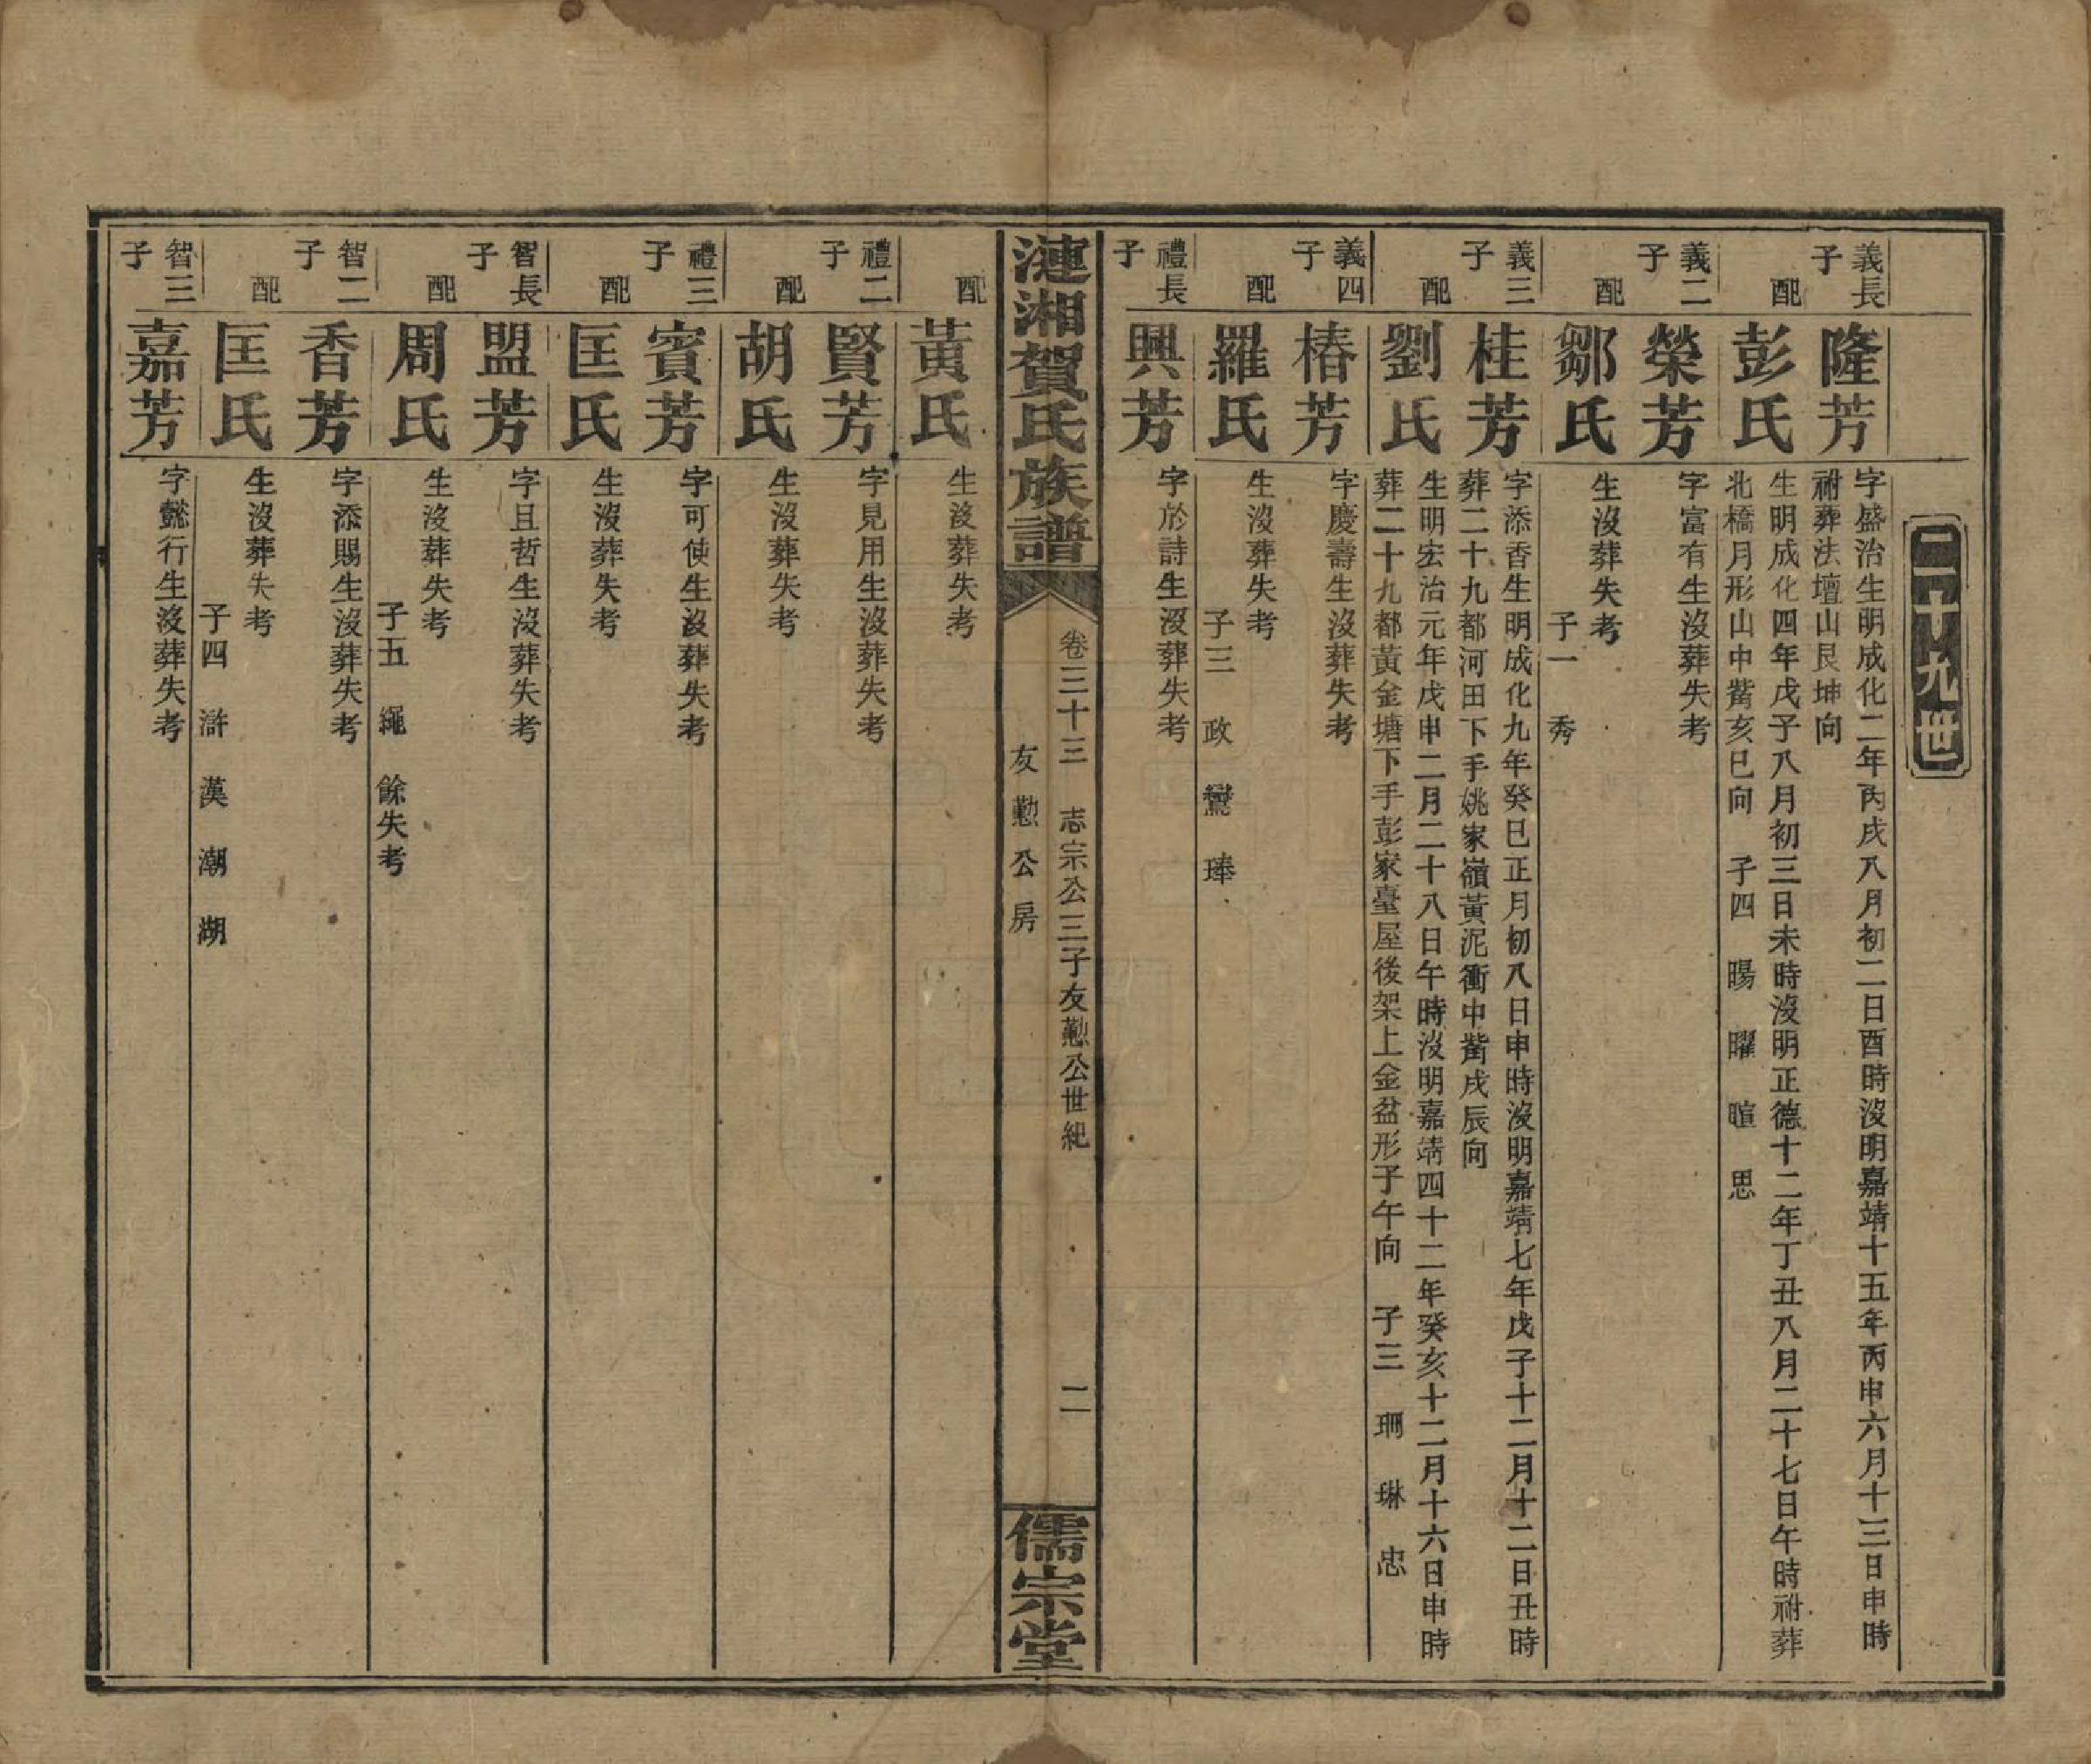 二十九世
義長子
隆芳
字盛治生明成化二年丙戌八月初二日酉時沒明嘉靖十五年丙申六月十三日申時
祔葬法壇山艮坤向
配
彭氏
生明成化四年戊子八月初三日未時沒明正德十二年丁丑八月二十七日午時祔葬
北橋月形山中觜亥巳向　子四　暘　曜　暄　思
義二子
榮芳
字富有生沒葬失考
配
鄒氏
生沒葬失考
子一　秀
義三子
桂芳
字添香生明成化九年癸巳正月初八日申時沒明嘉靖七年戊子十二月十二日丑時
葬二十九都河田下手姚家嶺黃泥衝中觜戌辰向
配
劉氏
生明宏治元年戊申二月二十八日午時沒明嘉靖四十二年癸亥十二月十六日申時
葬二十九都黃金塘下手彭家臺屋後架上金盆形子午向　子三　珊　琳　忠
義四子
椿芳
字慶壽生沒葬失考
配
羅氏
生沒葬失考
子三　政　鸞　琫
禮長子
興芳
字於詩生沒葬失考
漣湘賀氏族譜
卷三十三　志宗公三子友懃公世紀
友懃公房
二
儒宗堂
配
黃氏
生沒葬失考
禮二子
賢芳
字見用生沒葬失考
配
胡氏
生沒葬失考
禮三子
賓芳
字可使生沒葬失考
配
匡氏
生沒葬失考
智長子
盟芳
字且哲生沒葬失考
配
周氏
生沒葬失考
子五　繩　餘失考
智二子
香芳
字添賜生沒葬失考
配
匡氏
生沒葬失考
子四　滸　漢　潮　湖
智三子
嘉芳
字懿行生沒葬失考